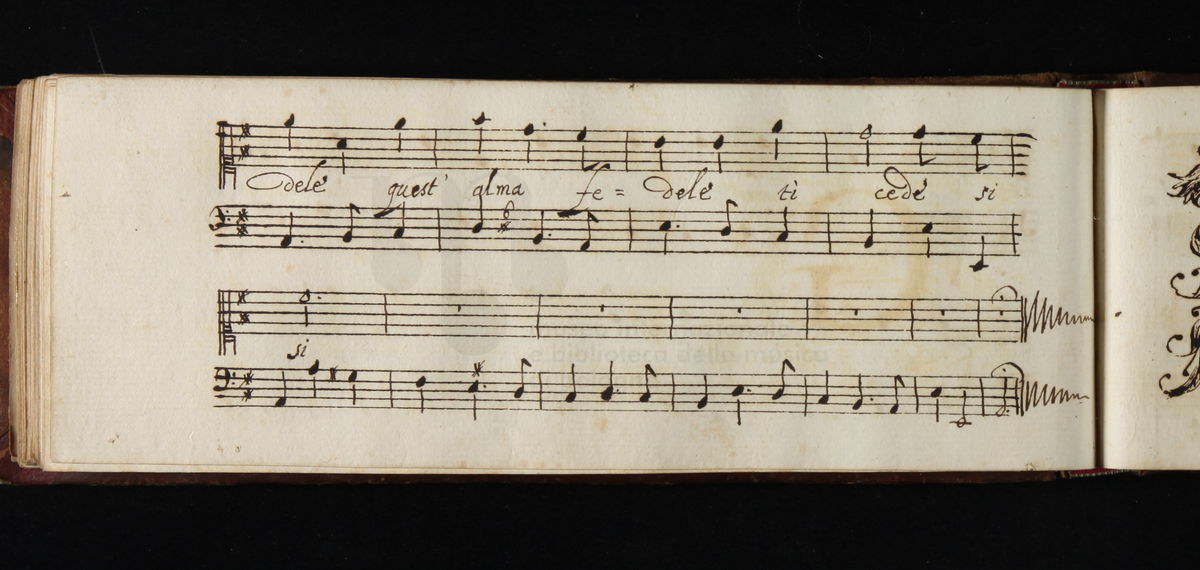 dele quest' alma fe= dele ti cede si
6
si
museo internazionale
e biblioteca della musica